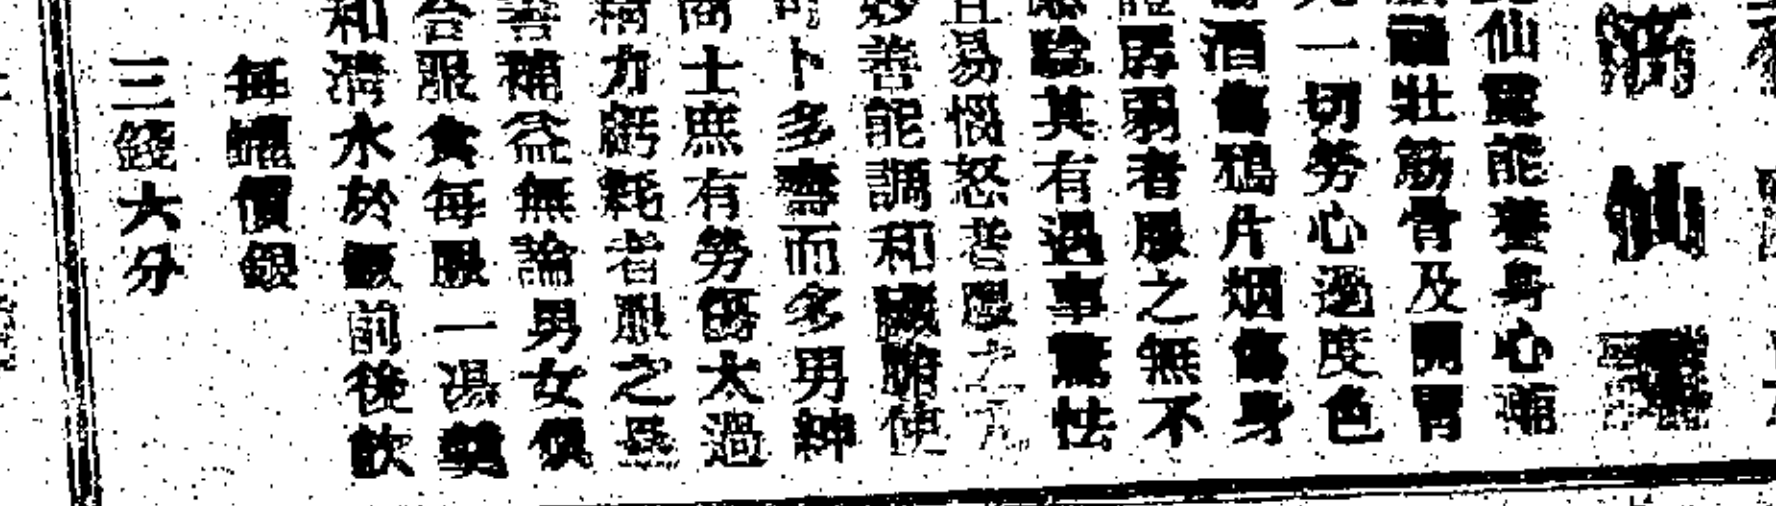 仙
仙能養身心補
壯筋骨及開胃
一切勞心過度色
酒傷鴉片烟傷身
孱弱者服之無不
驗其有遇事驚怯
易惱怒者服之
妙善能調和臟腑使
卜多壽而多男紳
商士庶有勞傷太過
力虧耗者服之
善補益無論男女俱
合服食每服一湯羹
和清水於飯前後飲
每罇價銀
三錢六分